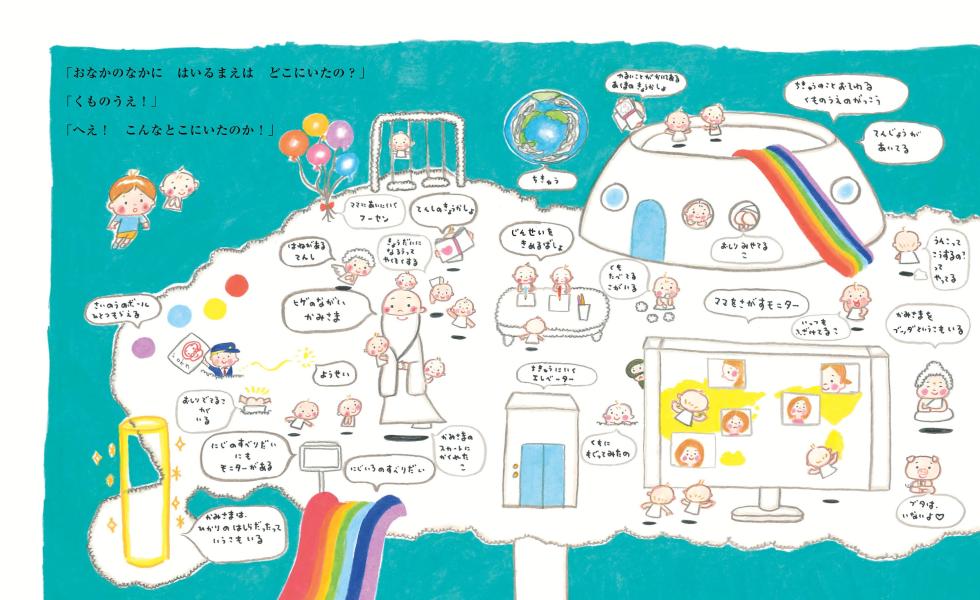 「おなかのなかに　はいるまえは　どこにいたの？」
「くものうえ！」
「へえ！　こんなとこにいたのか！」
ちきゅうのこと おしえる
くものうえのがっこう
てんじょうが
あいてる
ちきゅう
ママにあいにいく
フーセン
てんしのきょうかしょ
はねがある
てんし
きょうだいに
なろうって
やくそくする
じんせいを
きめるばしょ
くも
たべてる
こがいる
おしりみせてる
こ
うんこって
こうするの?
って
やってる
さいのうのボール
ひとつもらえる
ヒゲのながい
かみさま
ママをさがすモニター
いつも
ふざけてるこ
かみさまを
ブッダというこもいる
ようせい
ちきゅうにいく
エレベーター
おしりでてるこ
が
いる
にじのすべりだい
にも
モニターがある
にじいろのすべりだい
かみさまの
スカートに
かくれた
こ
くもに
もぐってみたの
かみさまは、
ひかりのはしらだったって
いうこもいる
ブタは、
いないよ♡